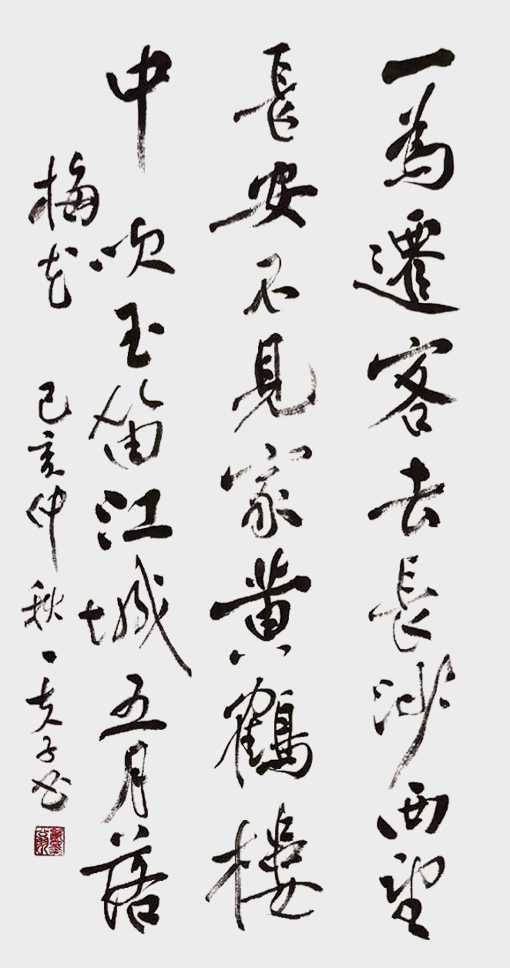 一為遷客去長沙西望
長安不見家黃鶴樓
中吹玉笛江城五月落
梅花 己亥仲秋